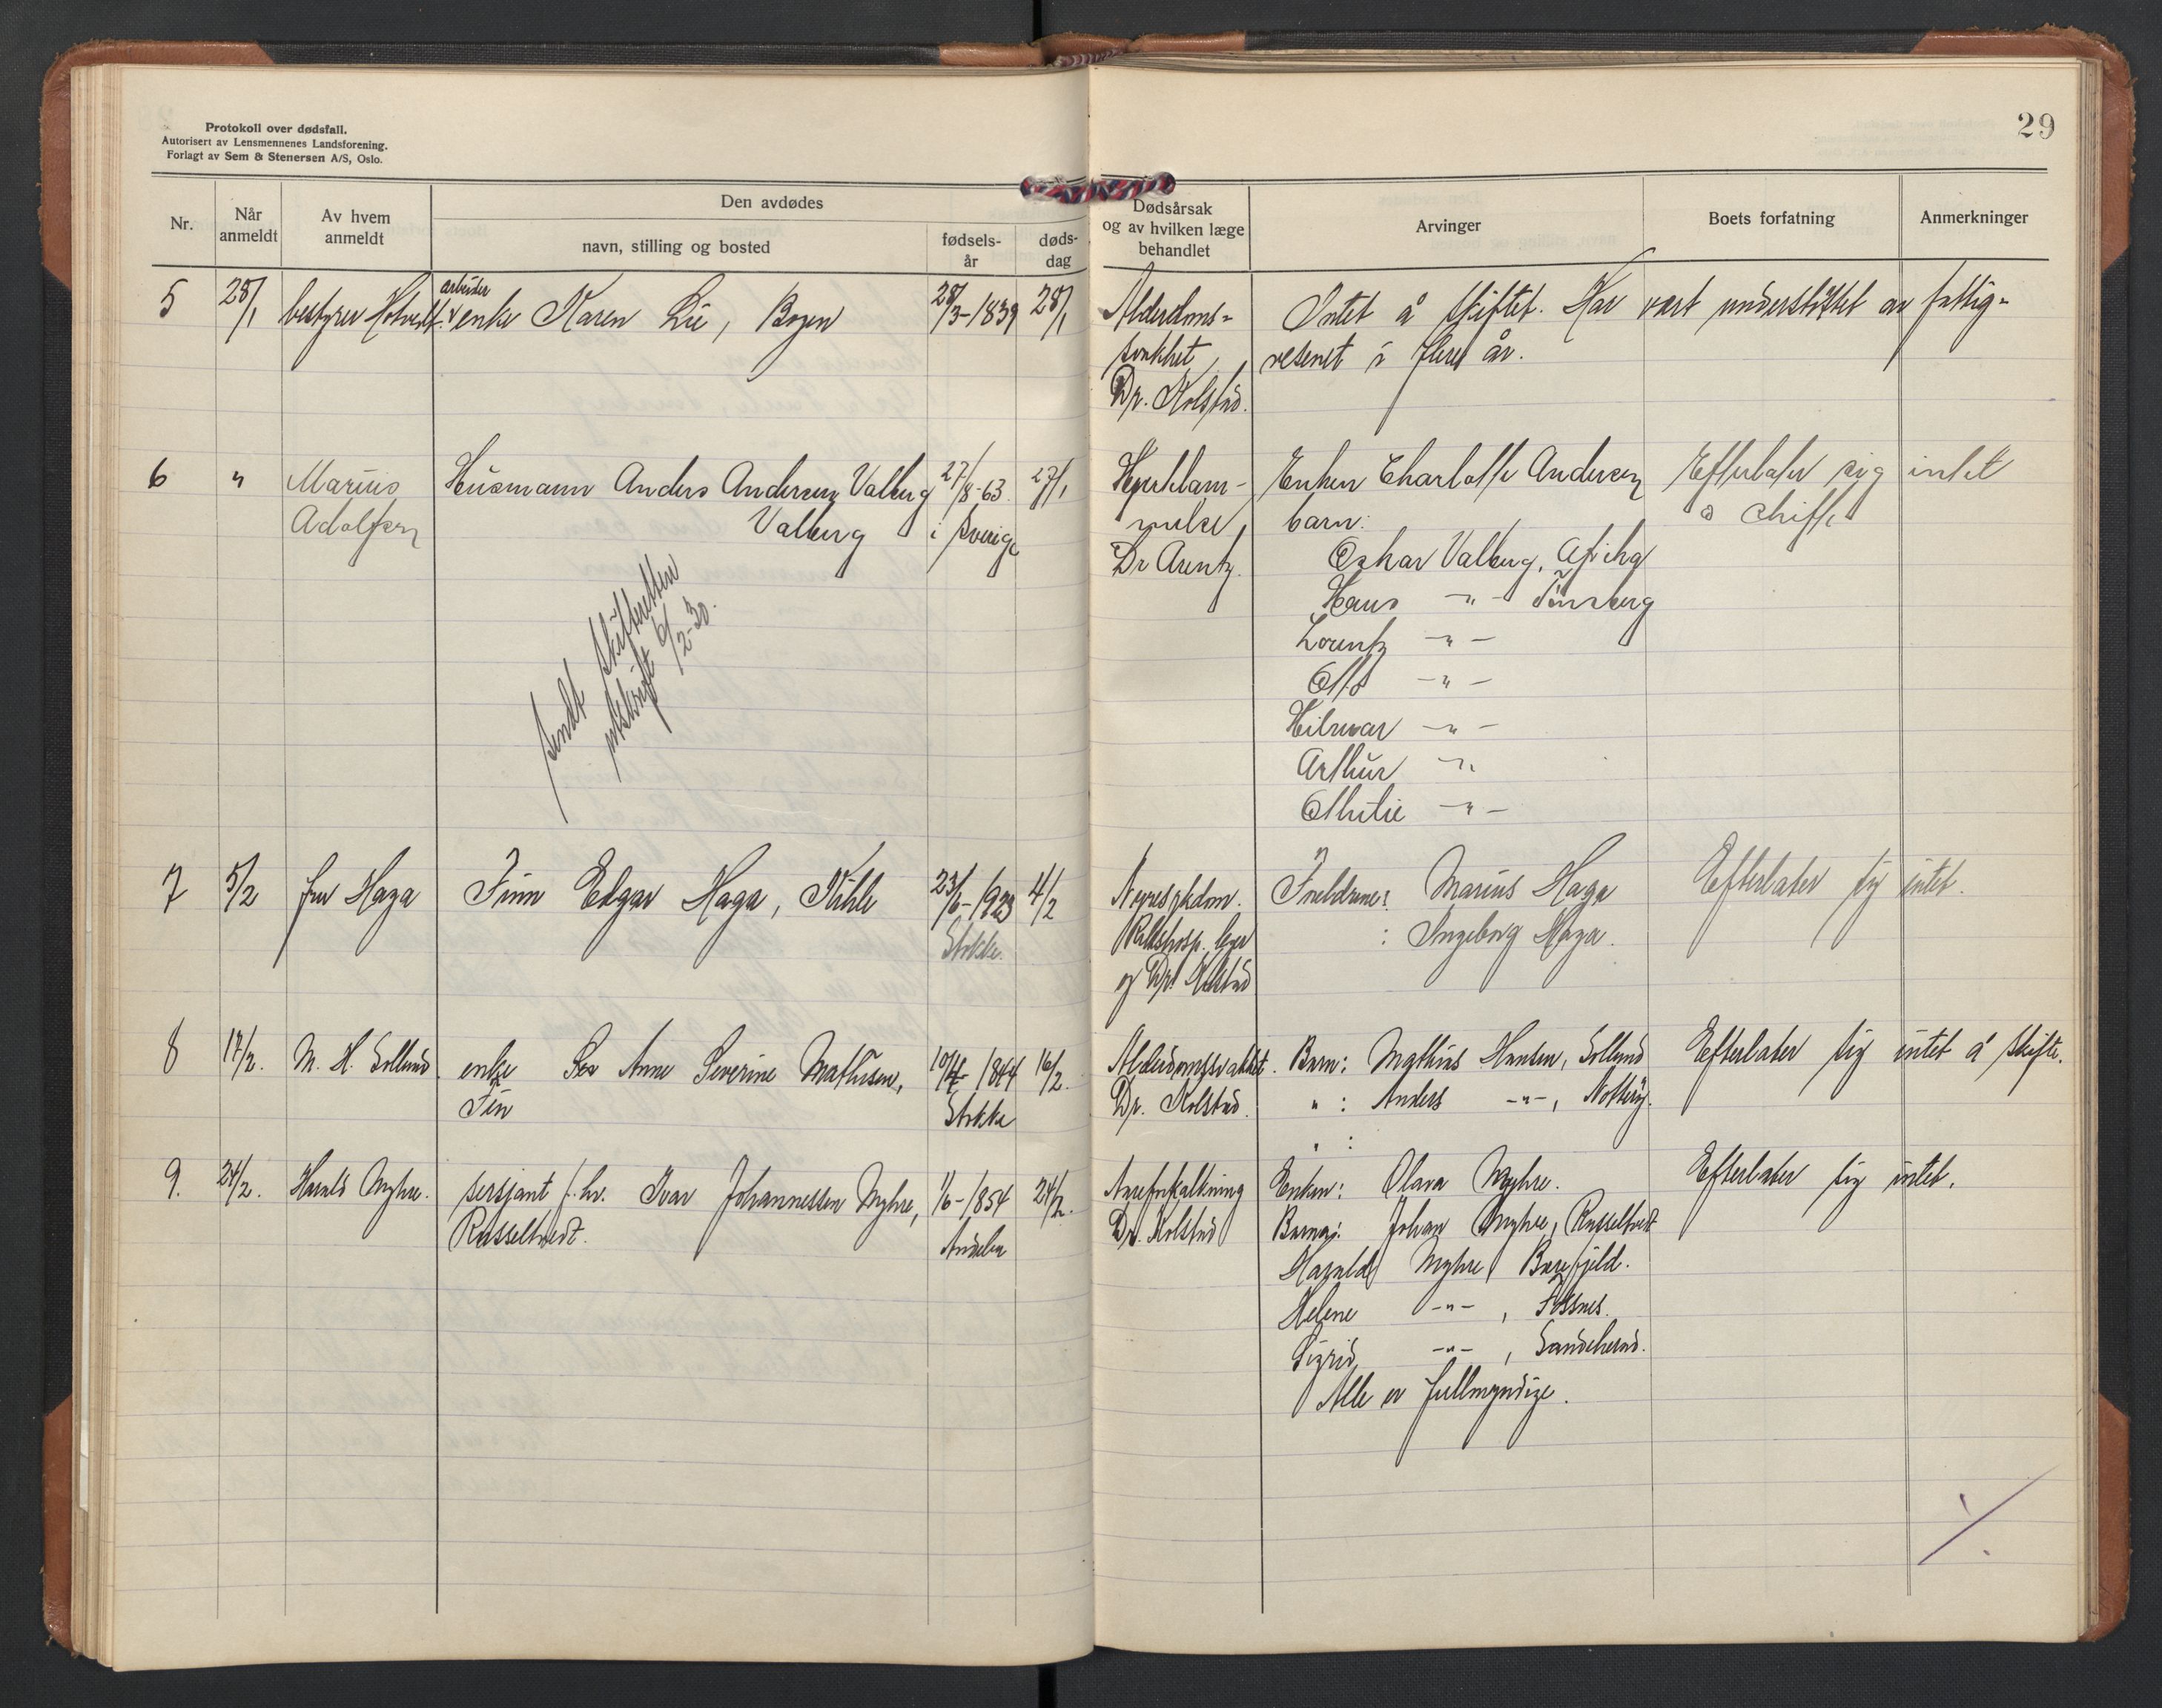 29
Protokoll over dødsfall.
Autorisert av Lensmennenes Landsforening.
Forlagt av Sem & Stenersen A/S, Oslo.
Nr.
Når anmeldt
Av hvem anmeldt
Den avdødes
navn, stilling og bosted
fødsels-år
døds-dag
Dødsårsak og av hvilken læge behandlet
Arvinger
Boets forfatning
Anmerkninger
5 28/1 bestyrer Hotvedt arbeider enke Karen Lie, Bogen 28/3-1839 28/1
Alderdoms-
svakhet,
Dr. Kolstad.
Intet å skiftet. Har vært understøttet av fattig-
vesenet i flere år.
6 " Marius
Adolfsen
Husmann Anders Andersen Valberg 27/8-63 27/1
Valberg i Sverige
sendt skifteretten
utskrift 6/2-30.
Hjertelam-
melse,
Dr Arentz.
Enken Charlotte Andersen
barn:
Oskar Valberg,
Hans -"- Tønsberg
Lorentz -"-
Otto -"-
Hilmar -"-
Arthur -"-
Othilie -"-
Efterlater sig intet
å skifte
7 5/2 fru Haga Finn Edgar Haga, 23/6-1923 4/2
Stokke.
Nyresykdom.
Rikshosp. leger
og Dr. Kolstad
Foreldrene: Marius Haga
: Ingeborg Haga.
Efterlater sig intet.
8 17/2. M. H. Solland. enke Anne Severine Mathisen, 10/4-1844 16/2.
Stokke
Alderdomssvakhet.
Dr. Kolstad.
Barn: Mathias Hansen, Solland
" : Anders -"-, Nøtterøy.
" :
Efterlater sig intet å skifte.
9. 24/2. Harald Myhre. sersjant f. hv. Ivar Johannessen Myhre, 1/6-1854 24/2.
Russeltvedt. Andebu
Åreforkalkning
Dr. Kolstad
Enken: Olava Myhre.
Barna: Johan Myhre, Russeltvedt
Harald Myhre
Helene -"-, Fossnes.
Sigrid -"-, Sandeherad.
Alle er fullmyndige.
Efterlater sig intet.